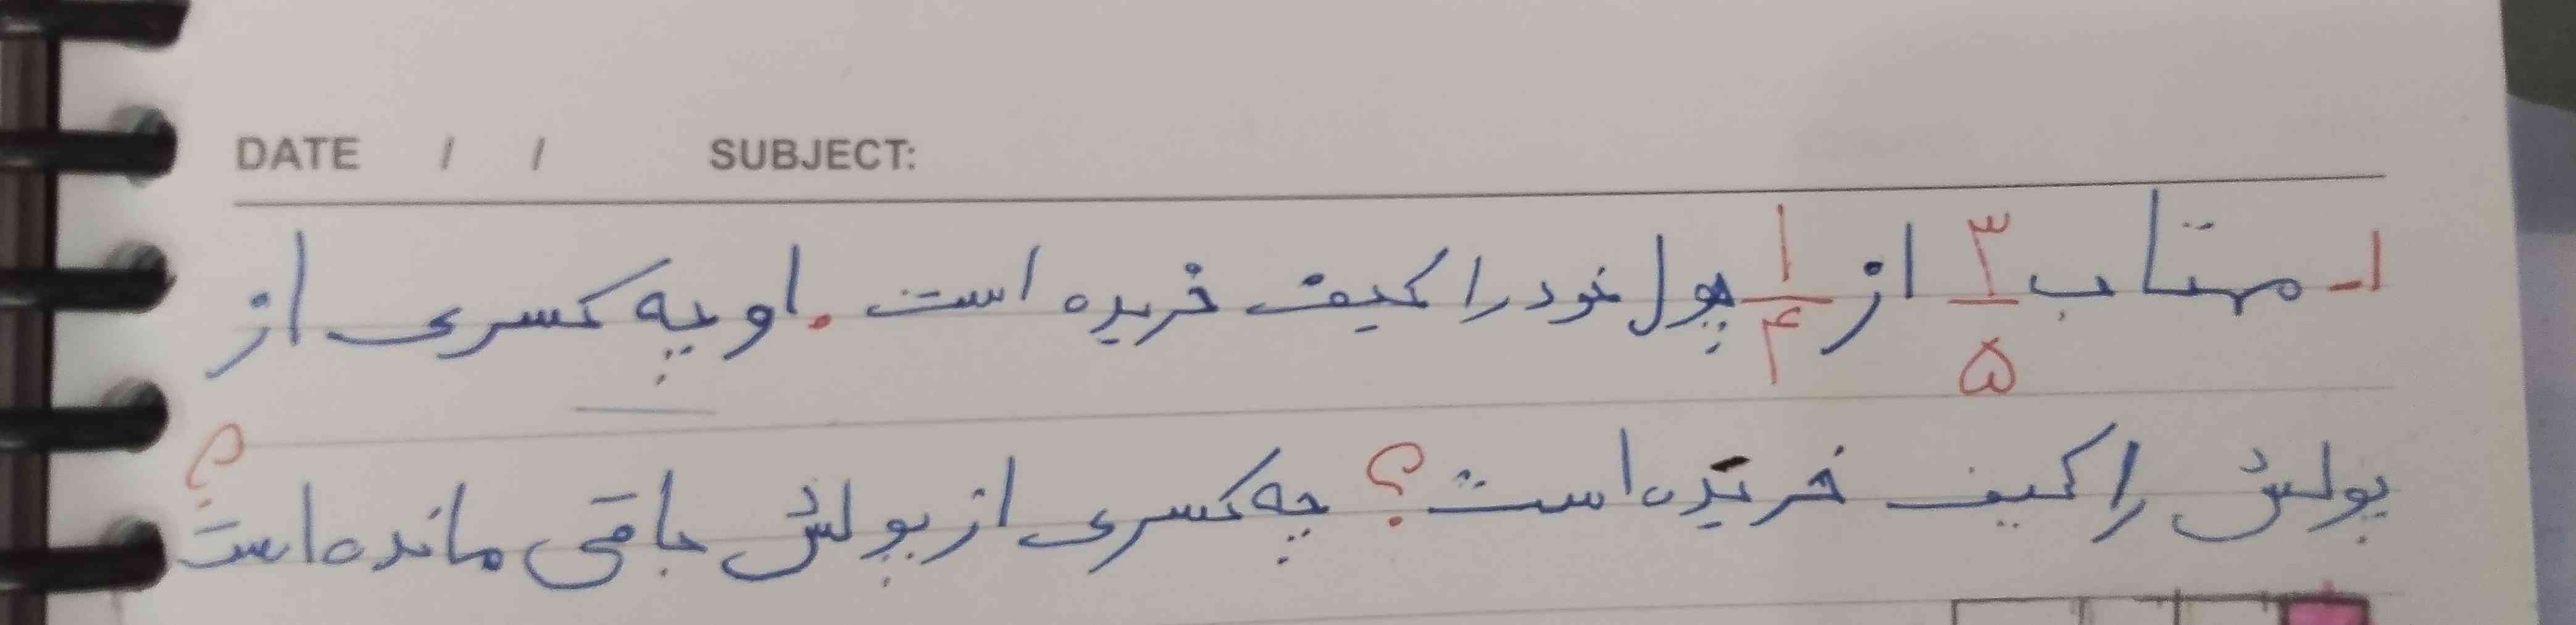 DATE / / SUBJECT:
۱- مهتاب ۳/۵ از ۱/۴ پول خود را کیف خریده است. او چه کسری از
پولش را کیف خریده است؟ چه کسری از پولش باقی مانده است؟